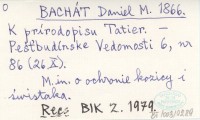 O
BACHÁT Daniel M. 1866.
K prírodopisu Tatier. –
Pešťbudínske Vedomosti 6, nr
86 (26 X).
M. in. o ochronie kozicy i
świstaka.
Rec. BIK 2. 1979.